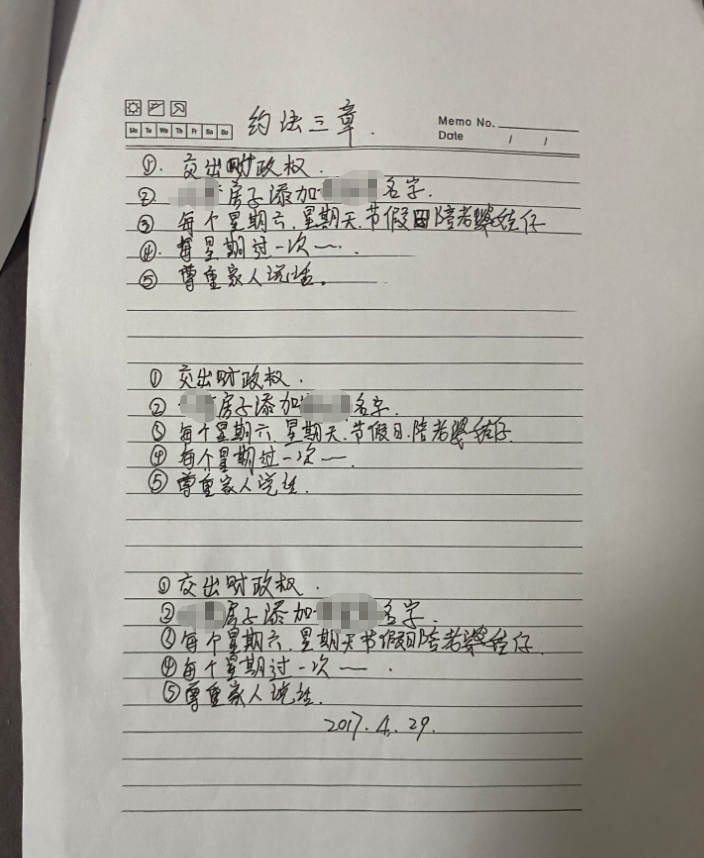 Mo Tu We Th Fr Sa Su
约法三章.
Memo No.
Date / /
①. 交出财政权.
② 房子添加 名字.
③ 每个星期六.星期天.节假日陪老婆 仔
④. 每星期过一次一.
⑤ 尊重家人说话。
① 交出财政权.
② 房子添加 名字.
③ 每个星期六.星期天.节假日.陪老婆 仔
④ 每个星期过一次一.
⑤ 尊重家人说话.
① 交出财政权.
② 房子添加 名字.
③ 每个星期六.星期天节假日陪老婆 仔.
④ 每个星期过一次一.
⑤ 尊重家人说话.
2017.4.29.